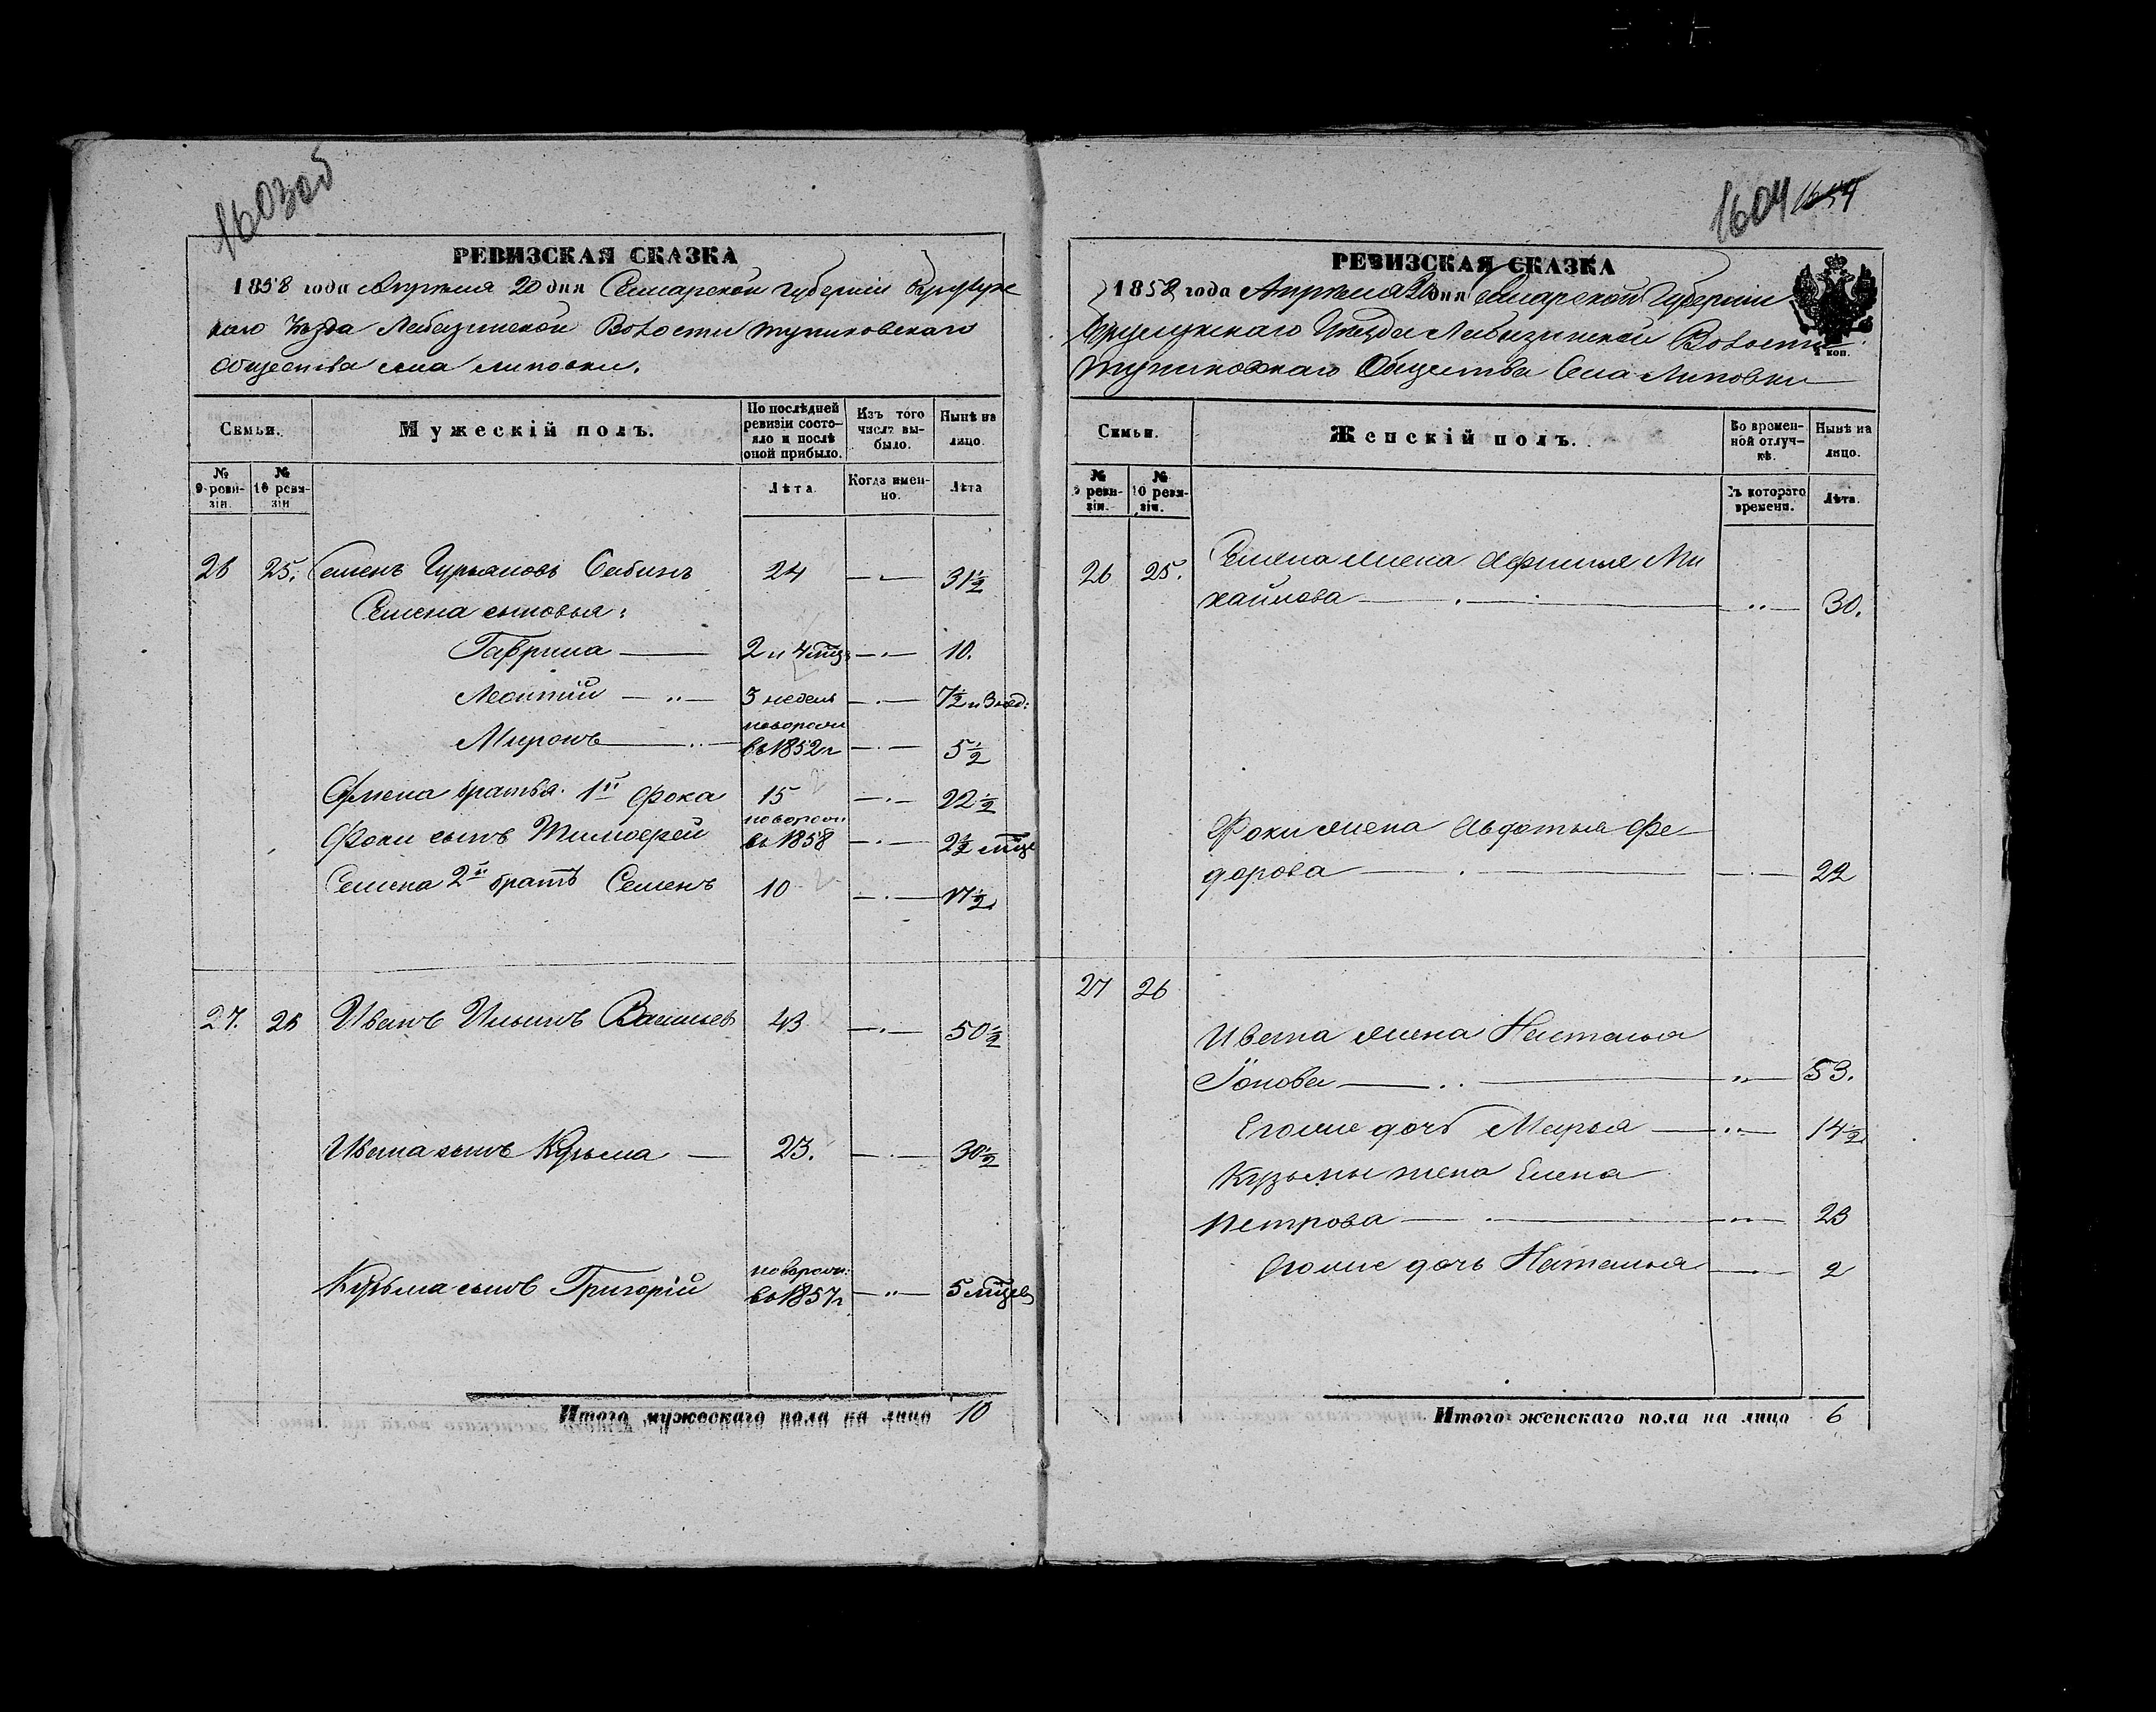 1603об
РЕВИЗСКАЯ СКАЗКА
1858 года Апреля 20 дня Самарской Губернiи Бузулук
скаго Уезда Лабазинской Волости тупиковскаго
общества села липовки.
Семьи.
Мужескій полъ.
По послѣдней ревизіи состо-яло и послѣ оной прибыло.
Изъ того числа вы-было.
Нынѣ на лицо.
№ 9 реви-зіи.
№ 10 реви-зіи
Лѣта
Когда имен-но.
Лѣта
26 25. Семенъ Гурьяновъ Сабинъ 24 —"— 31½
Семена сыновья:
Гаврила — 2 и 4 мцъ —"— 10.
Леонтій —"— 3 недель —"— 7½ и 3 нед:
новорожд
Миронъ —"— въ 1852г —"— 5½
Семена братья. 1й Фока 15 —"— 22½
новорожд
Фоки сынъ Тимофей въ 1858 —"— 2½ мцъ
Семена 2й братъ Семенъ 10 —"— 17½
27. 26 Иванъ Ильинъ Васильев 43 —"— 50½
Ивана сынъ Кузьма — 23. —"— 30½
новорожд:
Кузьма сынъ Григорій въ 1857г —"— 5 мцев
Итого мужескаго пола на лицо 10
1604 1654
РЕВИЗСКАЯ СКАЗКА
1858 года Апреля 20 дня Самарской Губерніи
Бузулукскаго Уезда Лабазинской Волости
тупиковскаго Общества Села Липовки
коп.
Семьи.
Женскій полъ.
Во времен-ной отлуч-кѣ.
Нынѣ на лицо.
№ 9 реви-зіи.
№ 10 реви-зіи.
Съ котораго времени.
Лѣта.
26 25. Семена жена Афимья Ми
хайлова —"— 30.
Фоки жена Авдотья Фе—
дорова —"— 22
27 26
Ивана жена Наталья
Іонова —"— 53.
Егоже дочь Марья —"— 14½
Кузьмы жена Елена
Петрова —"— 23
Егоже дочь Наталья — 2
Итого женскаго пола на лицо 6